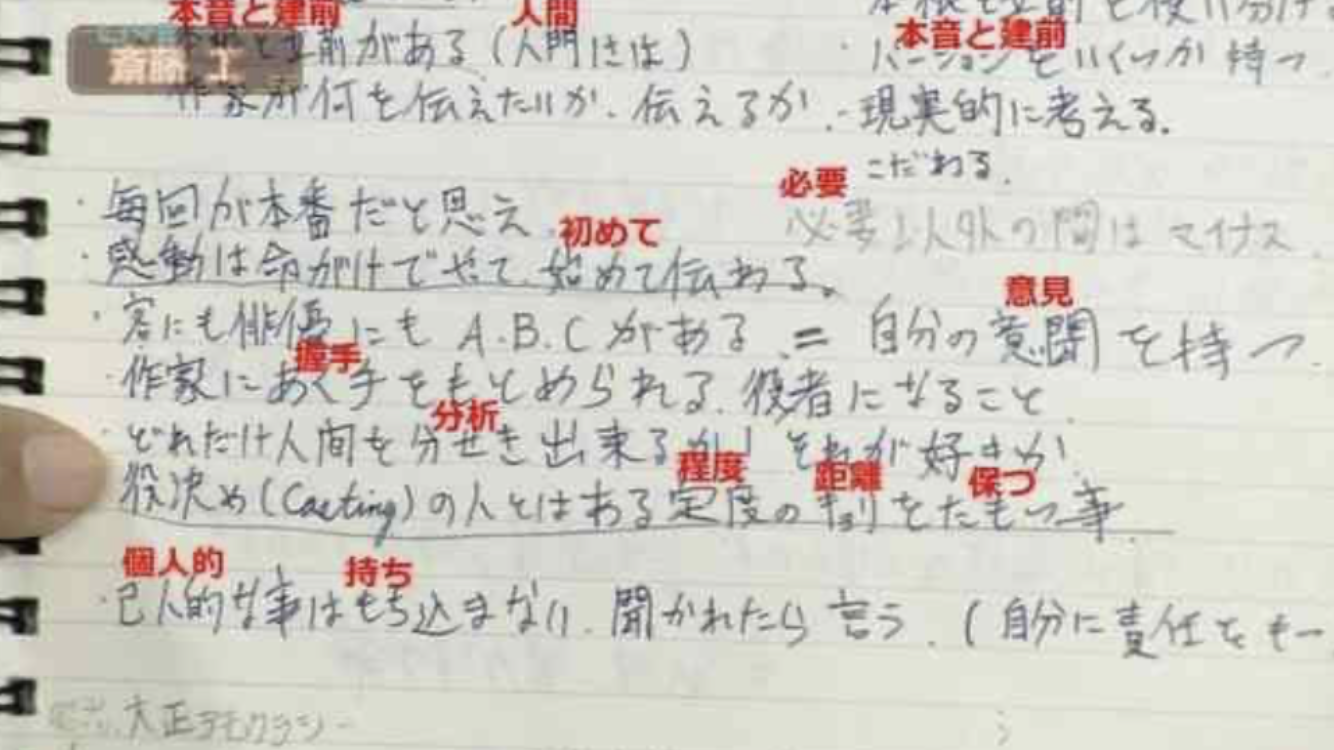 本音と建前 人間 本音と建前
前がある（人門には）
斎藤 工
・バージョンをいくつか持つ
作家が何を伝えたいか、伝えるか、・現実的に考える。
こだわる。
必要
・毎回が本番だと思え
以外の間はマイナス
初めて
・感動は命がけでやて、始めて伝わる。
意見
・客にも俳優にも A.B.C がある = 自分の意聞を持つ
握手
・作家にあく手をもとめられる、役者になること
分析
・どれだけ人間を分せき出来るか！それが好きか
程度 距離 保つ
・役決め（Casting）の人とはある定度のキョリをたもつ事
個人的 持ち
・己人的な事はもち込まない、聞かれたら言う、（自分に責任をもー
大正デモクラシー